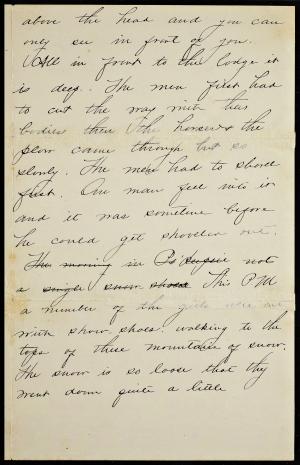 above the head and you can
only see in front of you.
All in front to the lodge it
is deep. The men first had
to cut the way with their
bodies then the horses & the
plow came through but so
slowly. The men had to shovel
first. One man fell into it
and it was sometime before
he could get shovelled out.
The moving in is not
a single snow shoes This P.M
a number of the girls were out
with snow shoes walking to the
tops of these mountains of snow.
The snow is so loose that they
went down quite a little